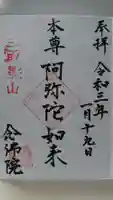 奉拝 令和三年
一月十九日
本尊 阿弥陀如来
念佛院